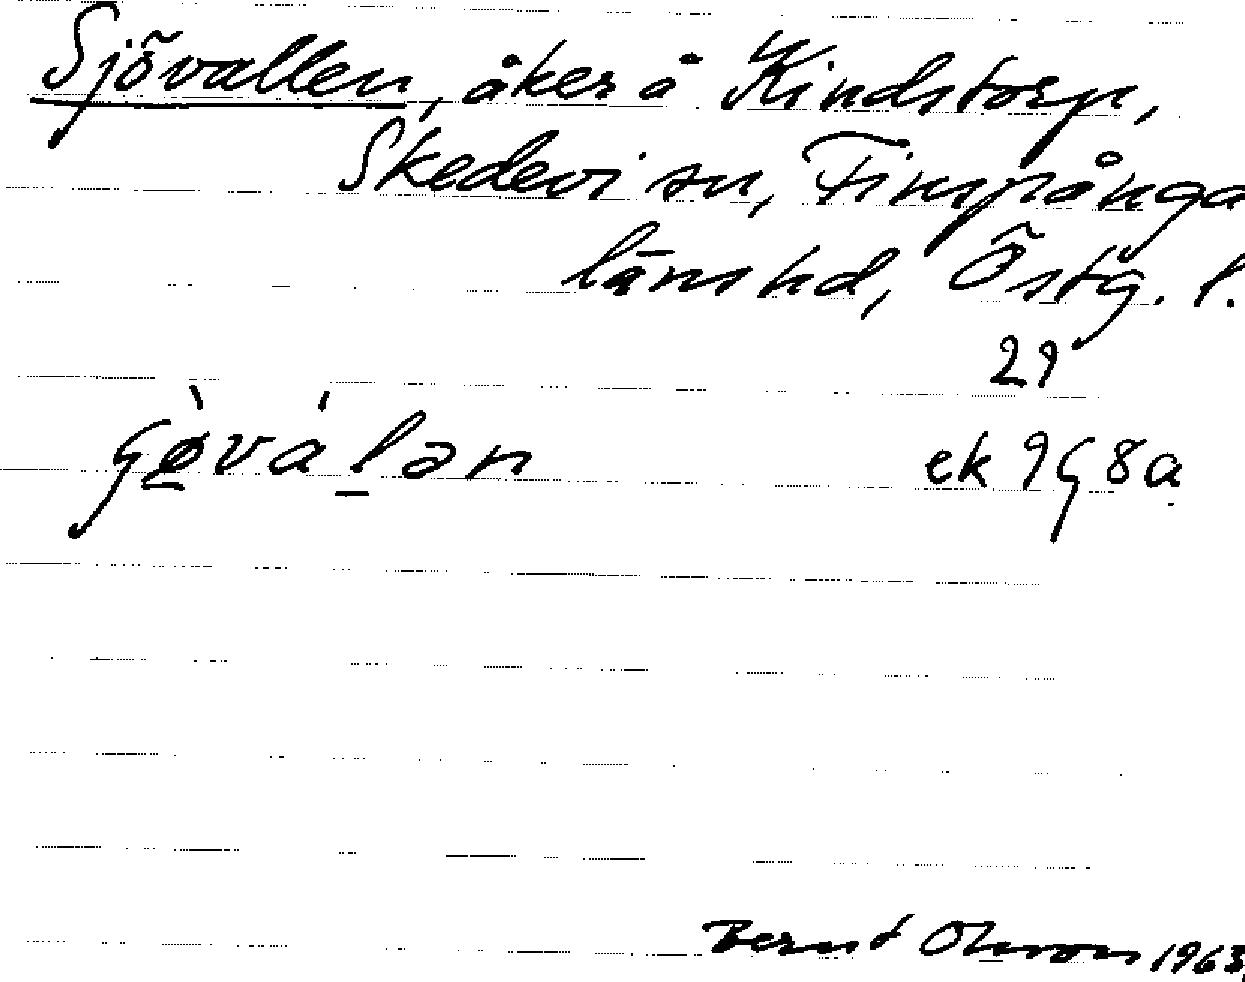 Sjövallen, åker å Kindstorp,
Skedevi sn, Finspånga
länshd, Östg. l.
29
ek 9G8a
Bernt Olsson 1963.